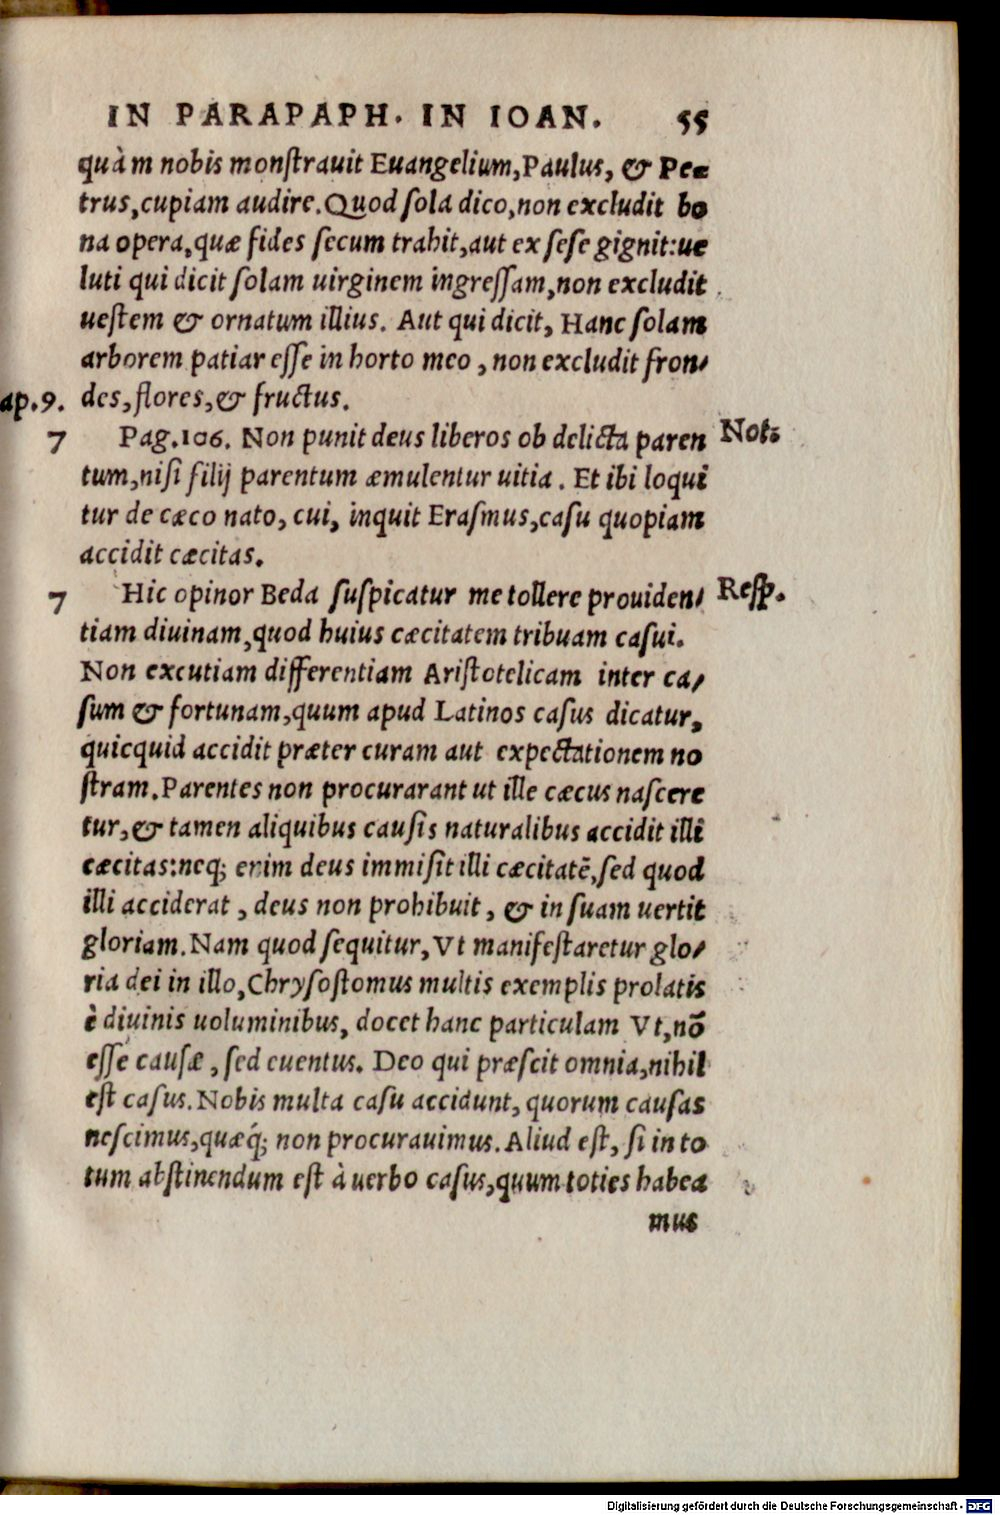 IN PARAPAPH. IN IOAN. 55
quàm nobis monſtrauit Euangelium,Paulus, & Pe=
trus,cupiam audire.Quod ſola dico,non excludit bo
na opera,quæ fides ſecum trahit,aut ex ſeſe gignit:ue
luti qui dicit ſolam uirginem ingreſſam,non excludit
ueſtem & ornatum illius. Aut qui dicit, Hanc ſolam
arborem patiar eſſe in horto meo , non excludit fron/
ap.9. des,flores,& fructus.
7 Pag.106. Non punit deus liberos ob delicta paren Not:
tum,niſi filij parentum æmulentur uitia . Et ibi loqui
tur de cæco nato, cui, inquit Eraſmus,caſu quopiam
accidit cæcitas.
7 Hic opinor Beda ſuſpicatur me tollere prouiden/ Reſp.
tiam diuinam,quod huius cæcitatem tribuam caſui.
Non excutiam differentiam Ariſtotelicam inter ca/
ſum & fortunam,quum apud Latinos caſus dicatur,
quicquid accidit præter curam aut expectationem no
ſtram.Parentes non procurarant ut ille cæcus naſcere
tur,& tamen aliquibus cauſis naturalibus accidit illi
cæcitas:neq; enim deus immiſit illi cæcitatẽ,ſed quod
illi acciderat , deus non prohibuit , & in ſuam uertit
gloriam.Nam quod ſequitur,Vt manifeſtaretur glo/
ria dei in illo,Chryſoſtomus multis exemplis prolatis
è diuinis uoluminibus, docet hanc particulam Vt,nõ
eſſe cauſæ , ſed euentus. Deo qui præſcit omnia,nihil
eſt caſus.Nobis multa caſu accidunt, quorum cauſas
neſcimus,quæq́; non procurauimus.Aliud eſt, ſi in to
tum abſtinendum eſt à uerbo caſus,quum toties habea
mus
Digitalisierung gefördert durch die Deutsche Forschungsgemeinschaft - DFG